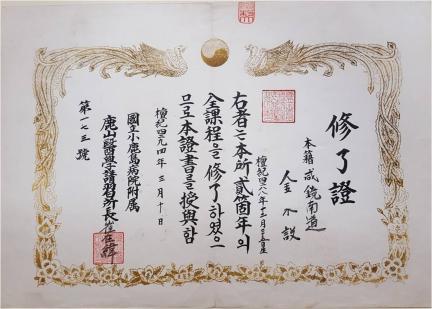 修了證
本籍 咸鏡南道
金
檀紀四二 年十二月 日生
右者는本所貳箇年의
全課程을修了하였으
므로本證書를授與함
檀紀四二九四年三月十日
國立小鹿島病院附属
鹿山醫學講習所長
第一七三號